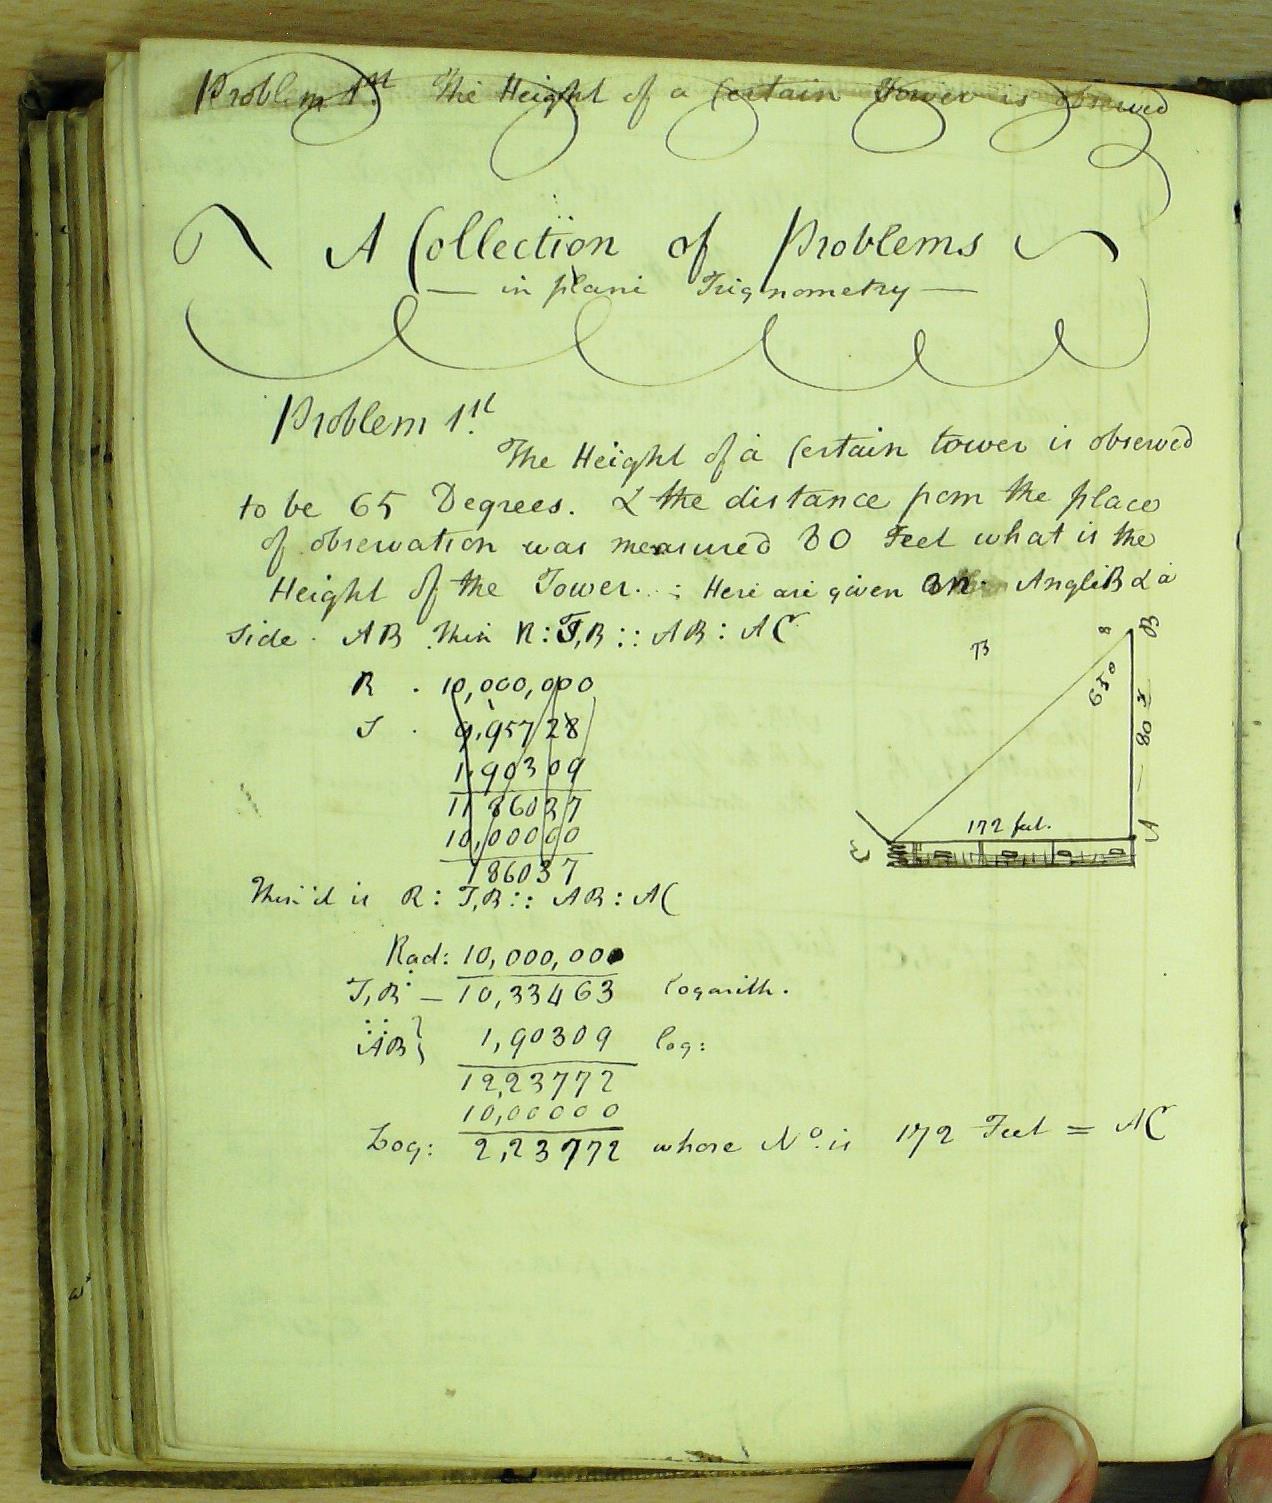 Problem 1st. The Height of a Certain Tower is obserued
A Collection of Problems
— in plani Trignometry —
Problem 1st.
The Height of a Certain tower is obserued
to be 65 Degrees. & the distance from the place
of obseruation was measured 80 Feet what is the
Height of the Tower. : Here are given an Angle B & a
side. AB then R : T,B :: AB : AC
R . 10,000,000
S . 9,95728
1,90309
11 86037
10,00000
186037
B
B
65°
80 F
A
172 feet.
C
Then it is R : T,B :: AB : AC
Rad: 10,000,000
T,B — 10,33463 Logarith.
:: AB } 1,90309 log:
12,23772
10,00000
Log: 2,23772 whose No. is 172 Feet = AC